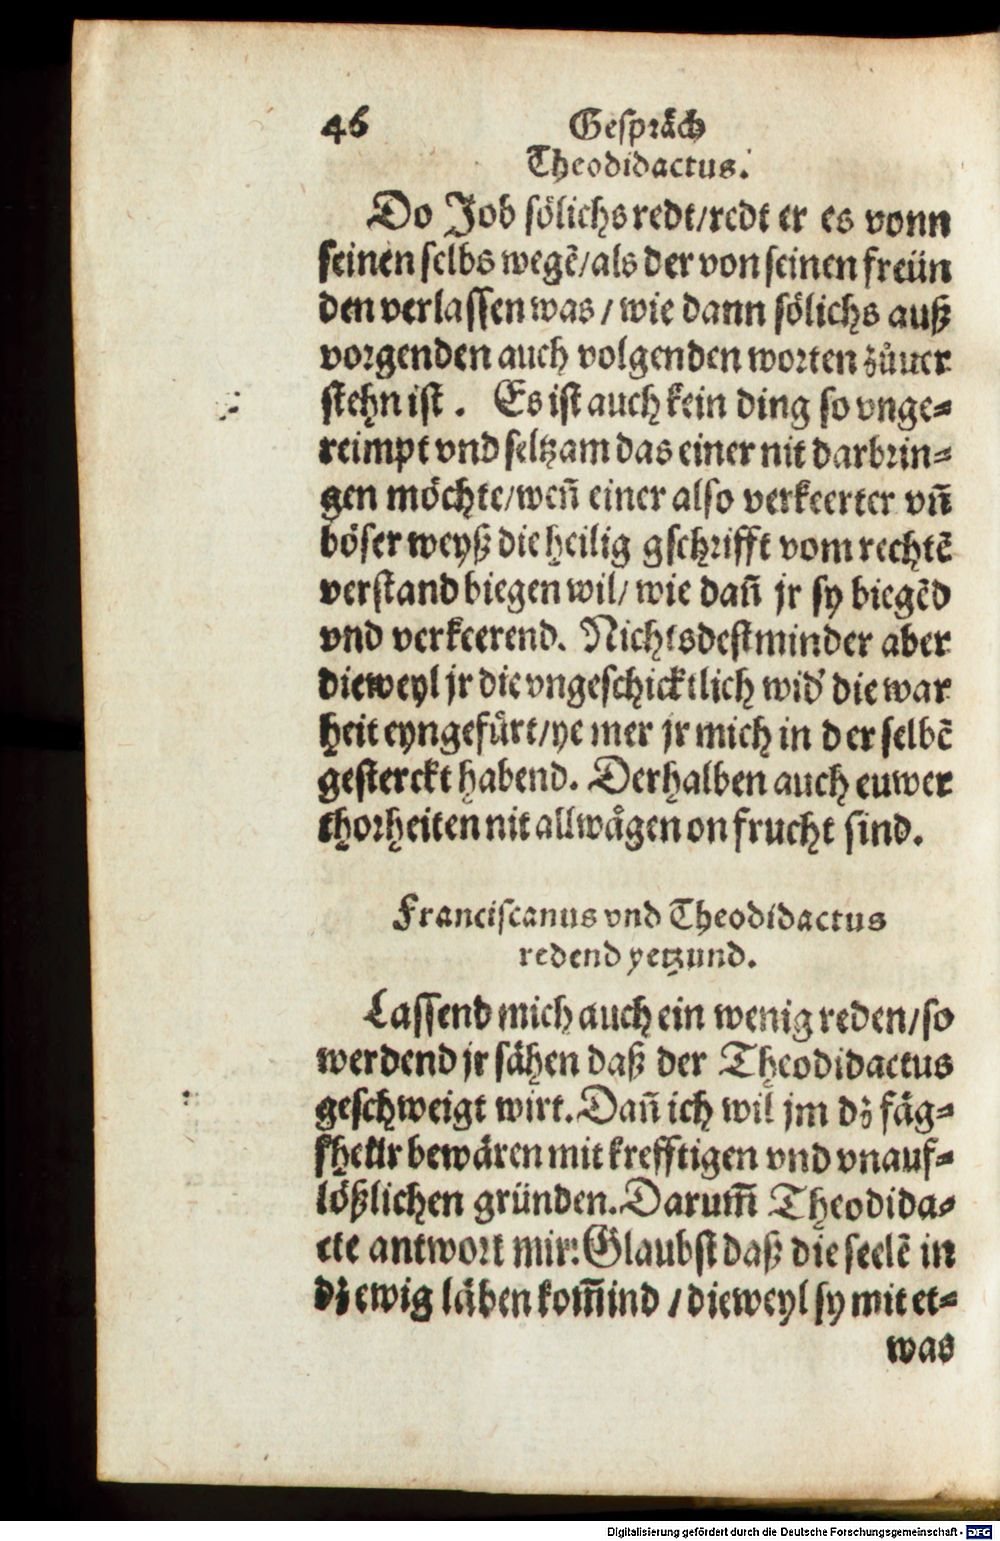 46 Gespräch
Theodidactus.
Do Job sölichs redt/redt er es vonn
seinen selbs wegē/als der von seinen freün
den verlassen was / wie dann sölichs auß
vorgenden auch volgenden worten zůuer
stehn ist . Es ist auch kein ding so vnge⸗
reimpt vnd seltzam das einer nit darbrin⸗
gen möchte/weñ einer also verkeerter vñ
böser weyß die heilig gschrifft vom rechtē
verstand biegen wil/ wie dañ jr sy biegēd
vnd verkeerend. Nichtsdestminder aber
dieweyl jr die vngeschicktlich wid' die war
heit eyngefürt/ye mer jr mich in der selbē
gesterckt habend. Derhalben auch euwer
thorheiten nit allwågen on frucht sind.
Franciscanus vnd Theodidactus
redend yetzund.
Lassend mich auch ein wenig reden/so
werdend jr sähen daß der Theodidactus
geschweigt wirt. Dañ ich wil jm dz fäg⸗
fheür bewären mit krefftigen vnd vnauf⸗
lößlichen gründen. Darum̄ Theodida⸗
cte antwort mir: Glaubst daß die seelē in
dz ewig läben kom̄ind / dieweyl sy mit et⸗
was
Digitalisierung gefördert durch die Deutsche Forschungsgemeinschaft - DFG